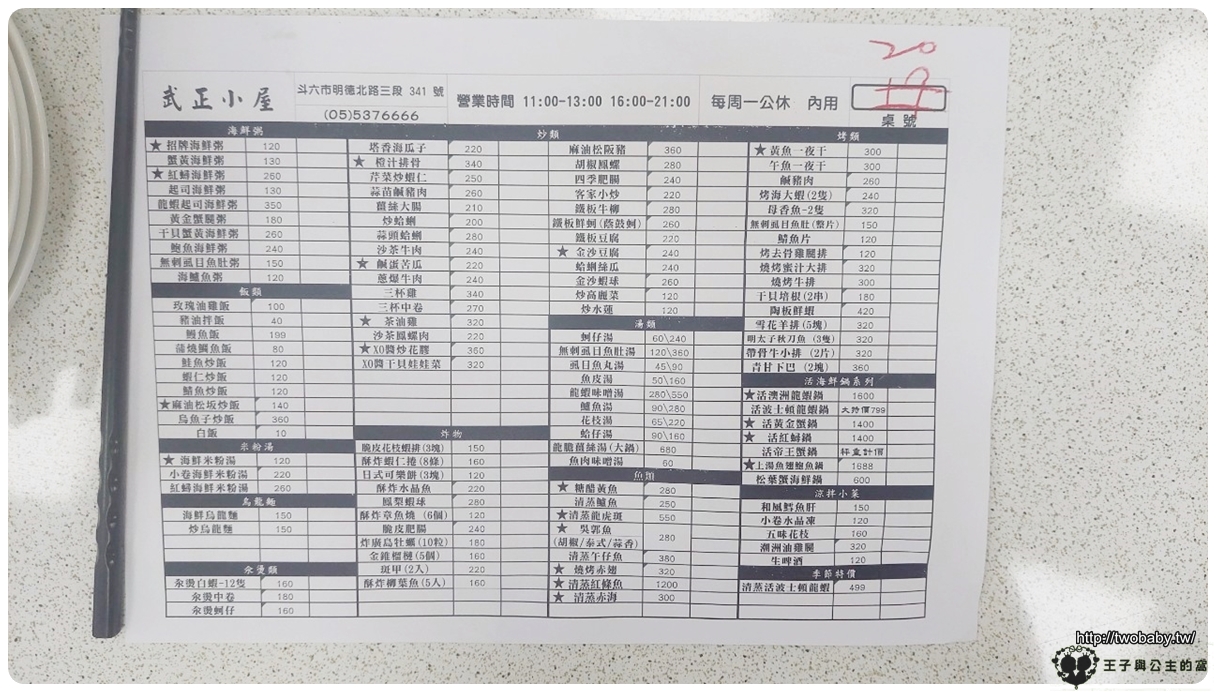 20
武正小屋
斗六市明德北路三段 341 號
(05)5376666
營業時間 11:00-13:00 16:00-21:00
每周一公休 內用
桌號
海鮮粥
★ 招牌海鮮粥 120
蟹黃海鮮粥 130
★ 紅蟳海鮮粥 260
起司海鮮粥 130
龍蝦起司海鮮粥 350
黃金蟹腿粥 180
干貝蟹黃海鮮粥 260
鮑魚海鮮粥 240
無刺虱目魚肚粥 150
海鱸魚粥 120
飯類
玫瑰油雞飯 100
豬油拌飯 40
鰻魚飯 199
蒲燒鯛魚飯 80
鮭魚炒飯 120
蝦仁炒飯 120
鯖魚炒飯 120
★麻油松坂炒飯 140
烏魚子炒飯 360
白飯 10
米粉湯
★ 海鮮米粉湯 120
小卷海鮮米粉湯 220
紅蟳海鮮米粉湯 260
烏龍麵
海鮮烏龍麵 150
炒烏龍麵 150
汆燙類
汆燙白蝦-12隻 160
汆燙中卷 180
汆燙蚵仔 160
炒類
塔香海瓜子 220
★ 橙汁排骨 340
芹菜炒蝦仁 250
蒜苗鹹豬肉 260
薑絲大腸 210
炒蛤蜊 200
蒜頭蛤蜊 280
沙茶牛肉 240
★ 鹹蛋苦瓜 220
蔥爆牛肉 240
三杯雞 340
三杯中卷 270
★ 茶油雞 320
沙茶鳳螺肉 220
★XO醬炒花膠 360
XO醬干貝娃娃菜 320
炸物
脆皮花枝蝦排(3塊) 150
酥炸蝦仁捲(8條) 160
日式可樂餅(3塊) 120
酥炸水晶魚 220
鳳梨蝦球 280
酥炸章魚燒 (6個) 120
脆皮肥腸 240
炸廣島牡蠣(10粒) 180
金錐榴槤(5個) 160
斑甲(2人) 220
酥炸柳葉魚(5人) 160
麻油松阪豬 360
胡椒鳳螺 280
四季肥腸 240
客家小炒 220
鐵板牛柳 280
鐵板鮮蚵(蔭鼓蚵) 260
鐵板豆腐 220
★ 金沙豆腐 240
蛤蜊絲瓜 240
金沙蝦球 260
炒高麗菜 120
炒水蓮 120
湯類
蚵仔湯 60\240
無刺虱目魚肚湯 120\360
虱目魚丸湯 45\90
魚皮湯 50\160
龍蝦味噌湯 280\550
鱸魚湯 90\280
花枝湯 65\220
蛤仔湯 90\160
龍膽薑絲湯(大鍋) 680
魚肉味噌湯 60
魚類
★ 糖醋黃魚 280
清蒸鱸魚 250
★清蒸龍虎斑 550
★ 吳郭魚
(胡椒/泰式/蒜香) 280
清蒸午仔魚 380
★ 燒烤赤翅 320
★清蒸紅條魚 1200
★ 清蒸赤海 300
烤類
★ 黃魚一夜干 300
午魚一夜干 300
鹹豬肉 260
烤海大蝦(2隻) 240
母香魚-2隻 320
無刺虱目魚肚(整片) 150
鯖魚片 120
烤去骨雞腿排 120
燒烤蜜汁大排 320
燒烤牛排 300
干貝培根(2串) 180
陶板鮮蝦 420
雪花羊排(5塊) 320
明太子秋刀魚 (3隻) 320
帶骨牛小排 (2片) 320
青甘下巴 (2塊) 360
活海鮮鍋系列
★活澳洲龍蝦鍋 1600
活波士頓龍蝦鍋 大特價799
★ 活黃金蟹鍋 1400
★ 活紅蟳鍋 1400
活帝王蟹鍋 秤重計價
★上湯魚翅鮑魚鍋 1688
松葉蟹海鮮鍋 600
涼拌小菜
和風鱈魚肝 150
小卷水晶凍 120
五味花枝 160
潮洲油雞腿 320
生啤酒 120
季節特價
清蒸活波士頓龍蝦 499
http://twobaby.tw/
王子與公主的窩